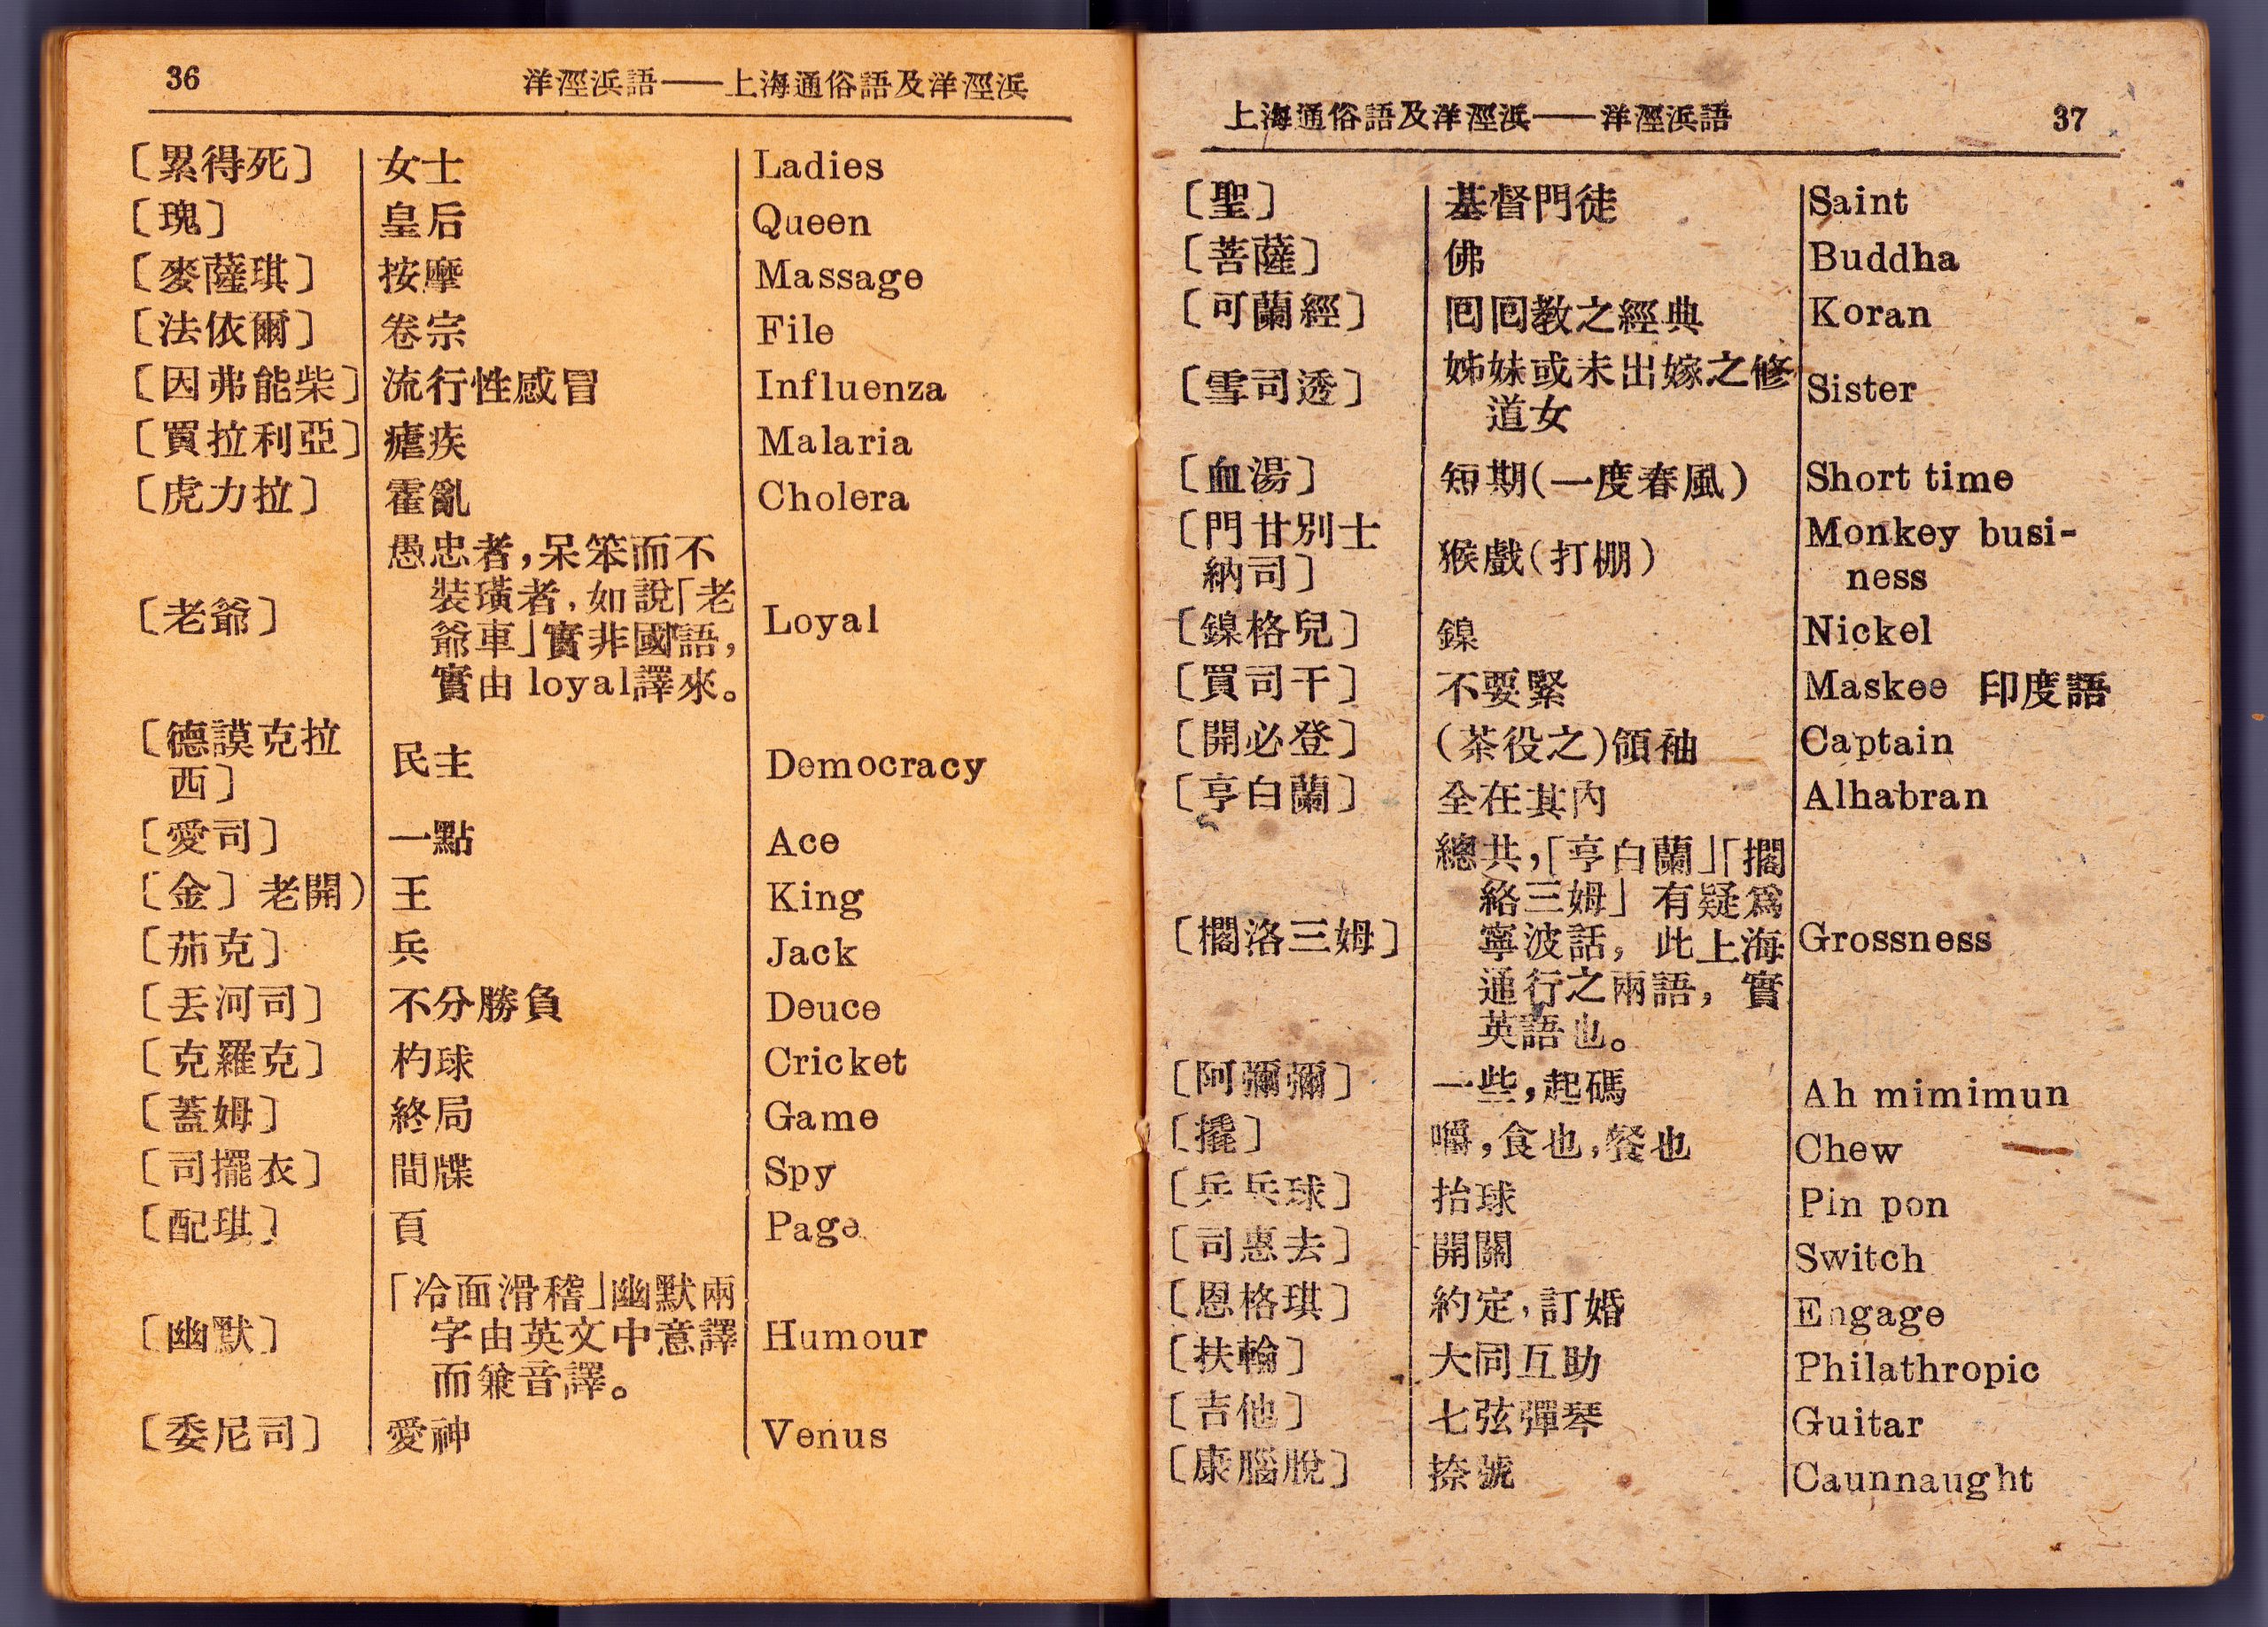 36 洋涇浜語——上海通俗語及洋涇浜
〔累得死〕 女士 Ladies
〔瑰〕 皇后 Queen
〔麥薩琪〕 按摩 Massage
〔法依爾〕 卷宗 File
〔因弗能柴〕 流行性感冒 Influenza
〔買拉利亞〕 瘧疾 Malaria
〔虎力拉〕 霍亂 Cholera
愚忠者,呆笨而不
裝璜者,如說「老
〔老爺〕 爺車」實非國語, Loyal
實由 loyal譯來。
〔德謨克拉
西〕 民主 Democracy
〔愛司〕 一點 Ace
〔金〕老開) 王 King
〔茄克〕 兵 Jack
〔丟河司〕 不分勝負 Deuce
〔克羅克〕 杓球 Cricket
〔蓋姆〕 終局 Game
〔司擺衣〕 間牒 Spy
〔配琪〕 頁 Page
「冷面滑稽」幽默兩
〔幽默〕 字由英文中意譯 Humour
而兼音譯。
〔委尼司〕 愛神 Venus
上海通俗語及洋涇浜——洋涇浜語 37
〔聖〕 基督門徒 Saint
〔菩薩〕 佛 Buddha
〔可蘭經〕 囘囘教之經典 Koran
〔雪司透〕 姊妹或未出嫁之修 Sister
道女
〔血湯〕 短期(一度春風) Short time
〔門甘別士 猴戲(打棚) Monkey busi-
納司〕 ness
〔鎳格兒〕 鎳 Nickel
〔買司干〕 不要緊 Maskee 印度語
〔開必登〕 (茶役之)領袖 Captain
〔亨白蘭〕 全在其內 Alhabran
總共,「亨白蘭」「擱
絡三姆」有疑爲
〔擱洛三姆〕 寧波話, 此上海 Grossness
通行之兩語, 實
英語也。
〔阿彌彌〕 一些,起碼 Ah mimimun
〔撬〕 嚼,食也,餐也 Chew
〔乒乓球〕 抬球 Pin pon
〔司惠去〕 開關 Switch
〔恩格琪〕 約定,訂婚 Engage
〔扶輪〕 大同互助 Philathropic
〔吉他〕 七弦彈琴 Guitar
〔康腦脫〕 捺號 Caunnaught